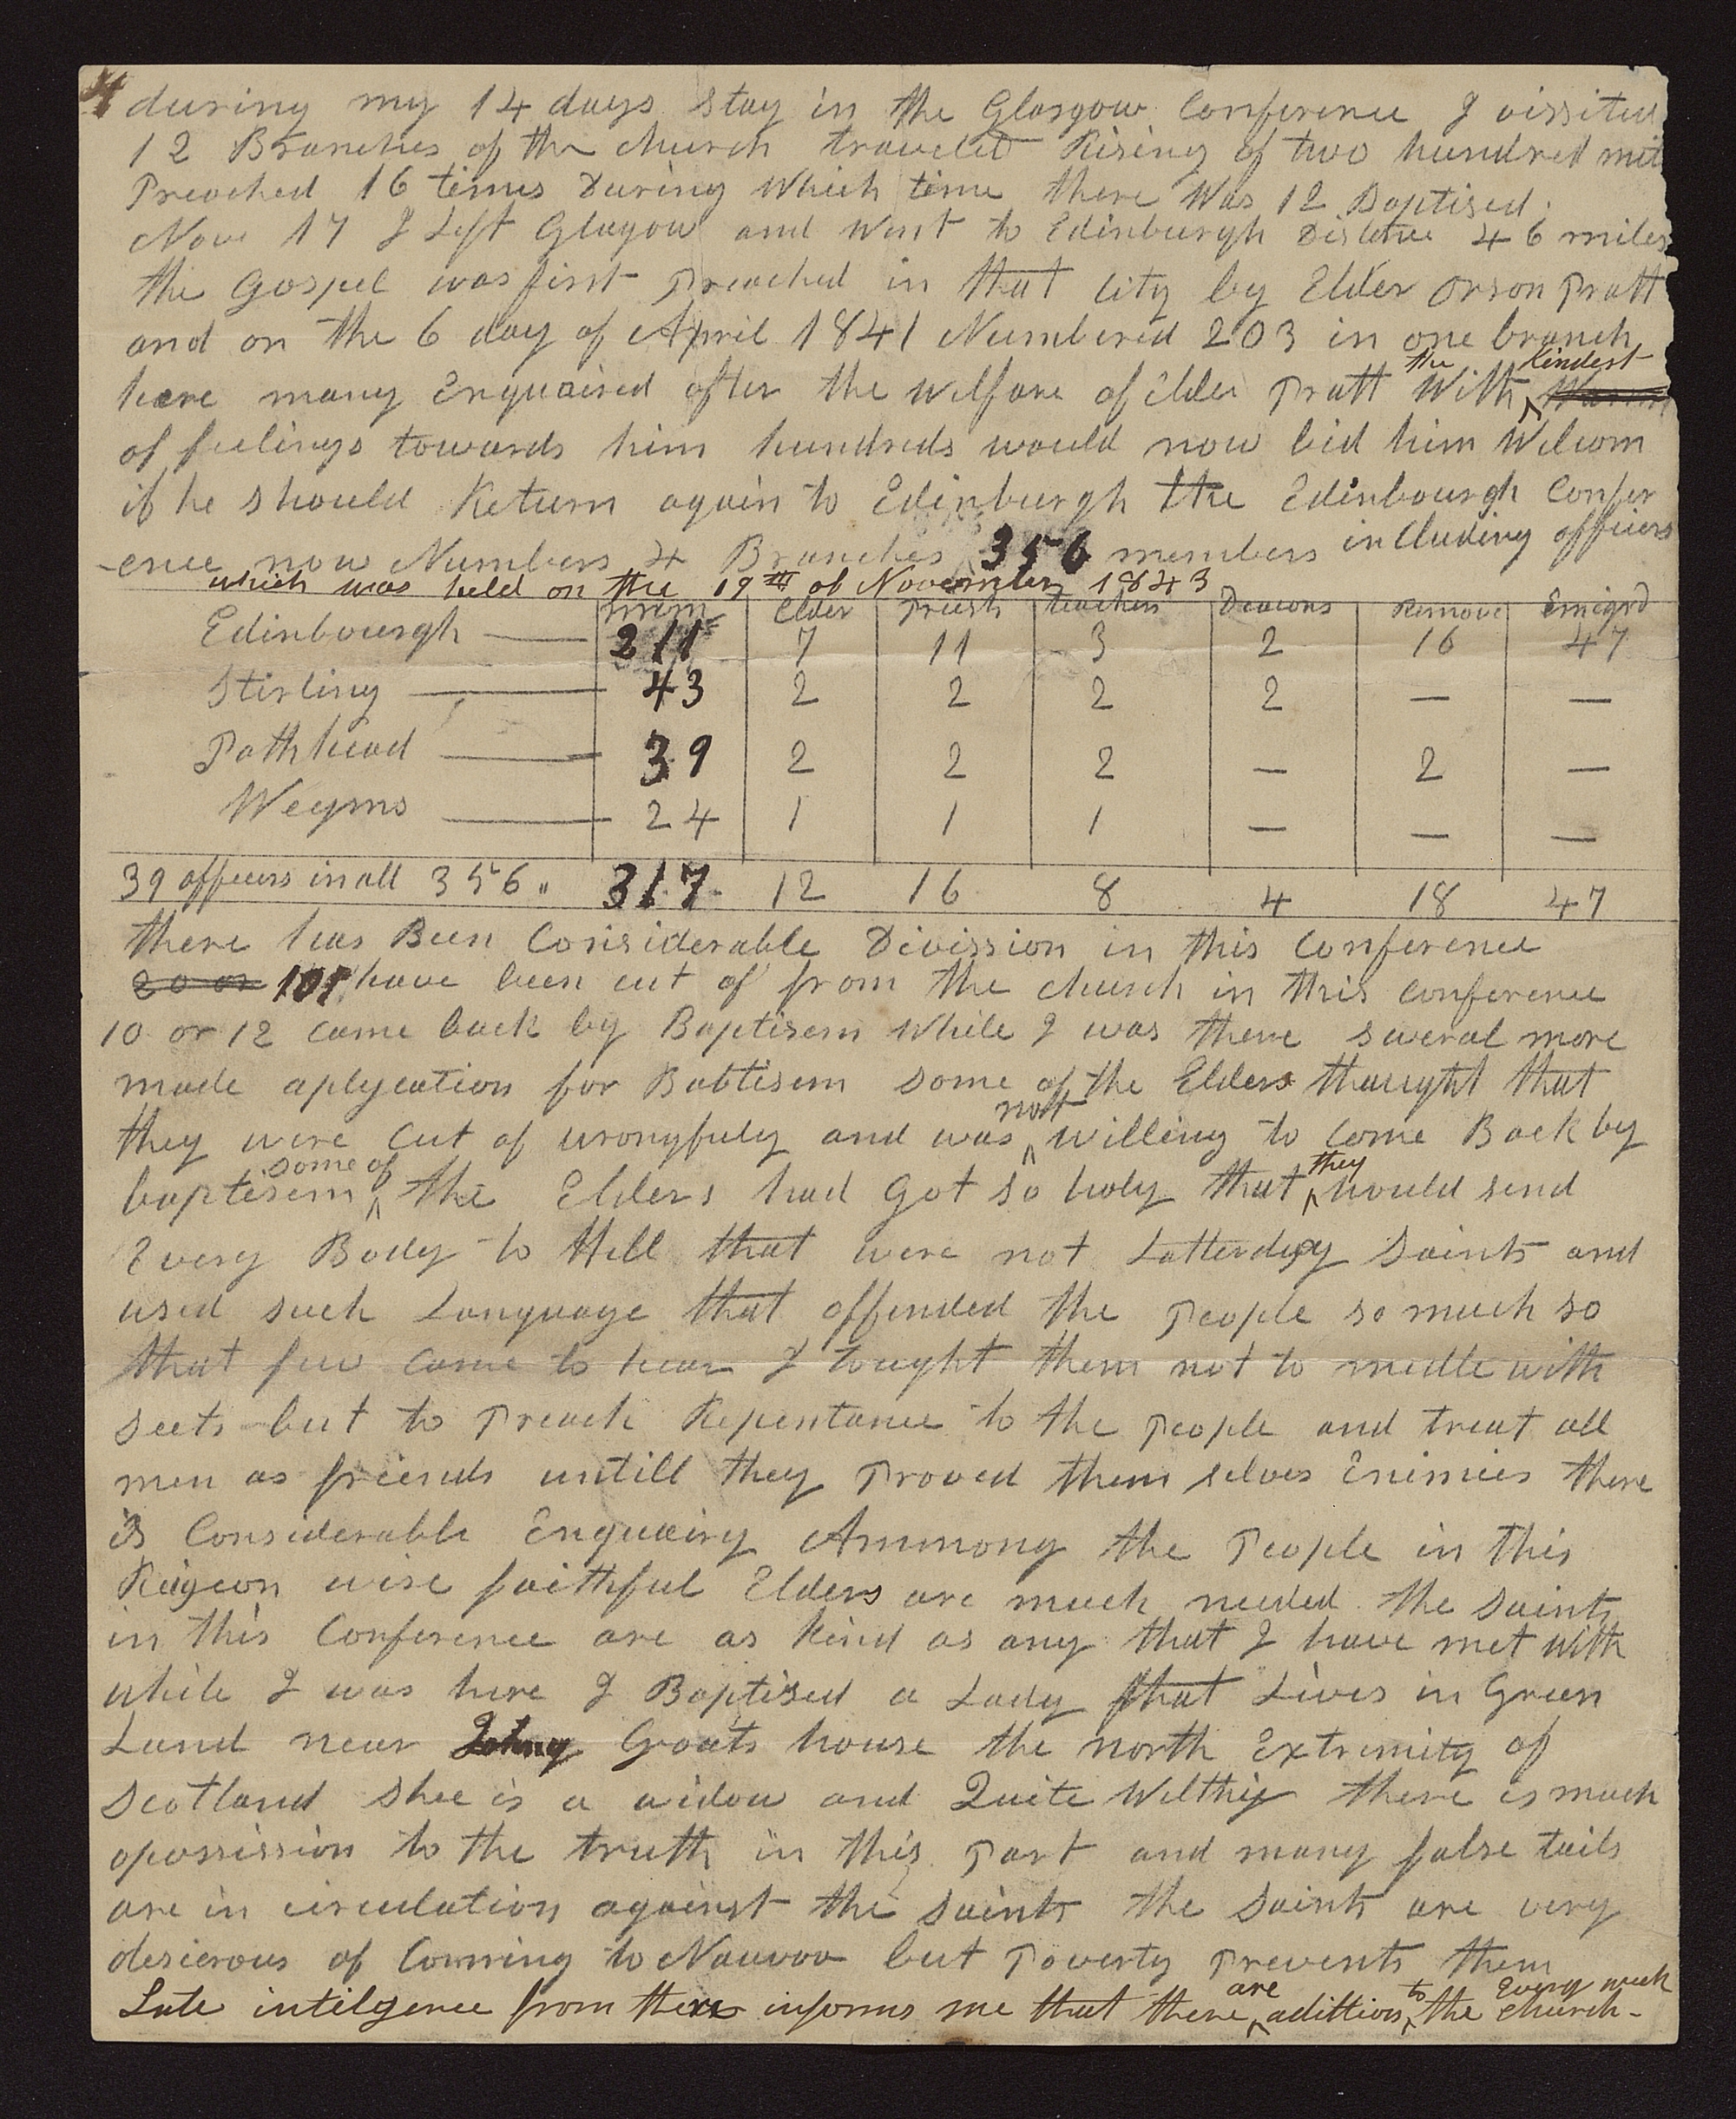 4 during my 14 days stay in the Glasgow Conference I vissited
12 Branches of the church traveled Rising of two hundred mil
Preached 16 times During Which time there Was 12 Baptised.
Nov 17 I Left Glasgow and Went to Edinburgh Distance 46 miles
the Gospel was first Preached in that City by Elder Orson Pratt
and on the 6 day of April 1841 Numbered 203 in one branch
here many Enquaired after the Welfare of Elder Pratt With the kindest
of feelings towards him hundreds would now bid him Welcom
if he should Return again to Edinburgh the Edinbourgh Confer
-ence now Numbers 4 Branches 356 members including officers
which was held on the 19th of November 1843
mem Elder Priests teachers Deacons Remove Emigrd
Edinbourgh 211 7 11 3 2 16 47
Stirling 43 2 2 2 2 — —
Pathhead 39 2 2 2 — 2 —
Weyms 24 1 1 1 — — —
39 officers in all 356 " 317 12 16 8 4 18 47
there has Been Considerable Divission in this Conference
20 or 101 have been cut of from the church in this conference
10 or 12 came back by Baptisem While I was there several more
made aplycation for Babtisem some of the Elders thaught that
they were Cut of wrongfuly and was nott willing to Come Back by
baptisem some of the Elders had Got so holy that they would send
Every Body to Hell that were not Latterday Saints and
used such Language that offended the People so much so
that few Came to hear I tought them not to medle with
sects but to Preach Repentance to the People and treat all
men as friends untill they Proved them selves Enimies there
is Considerable Enquairy Ammong the People in this
Reigeon wise faithful Elders are much needed the Saints
in this Conference are as kind as any that I have met With
while I was here I Baptised a Lady that Lives in Green
Land near Johny Groats house the north Extremity of
Scotland Shee is a widow and Quite Welthy there is much
opossission to the truth in this Part and many false tails
are in circulation against the Saints the Saints are very
desierous of Comming to Nauvoo but Poverty Prevents them
Late intilgence from there informs me that there are adittions to the church Every week